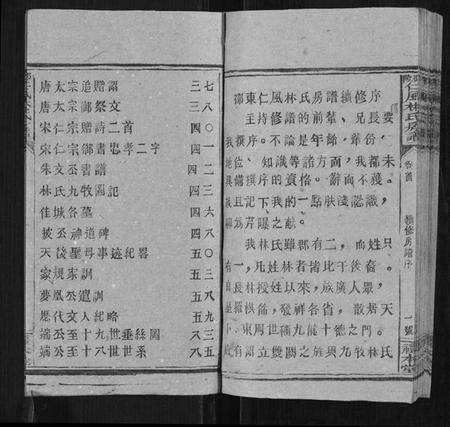 唐太宗追贈詔 三七
唐太宗御祭文 三八
宋仁宗贈詩二首 四〇
宋仁宗御書忠孝二字 四一
朱文公書譜 四二
林氏九牧圖記 四三
佳城各墓 四六
披公神道碑 四八
天后聖母事迹紀畧 五〇
家規家訓 五三
夢鳳公遺訓 五八
歷代文人紀略 五九
端公至十九世垂絲圖 八三
端公至十八世世系 八五
邵東仁風林氏房譜續修序
主持修譜的前輩、兄長要
我撰序。不論是年齡、輩份、
地位、知識等諸方面，我都未
具備撰序的資格。辭而不獲。
我且記下我的一點膚淺認識，
聊為芹曝之献。
我林氏雖郡有二，而姓只
有一，凡姓林者皆比干後裔。
自長林授姓以來，成廣人眾，
發祥各省，散居天
下。東周世稱九龍十德之門。
九牧林氏
仁風林氏房譜
卷首
續修房譜序
一號